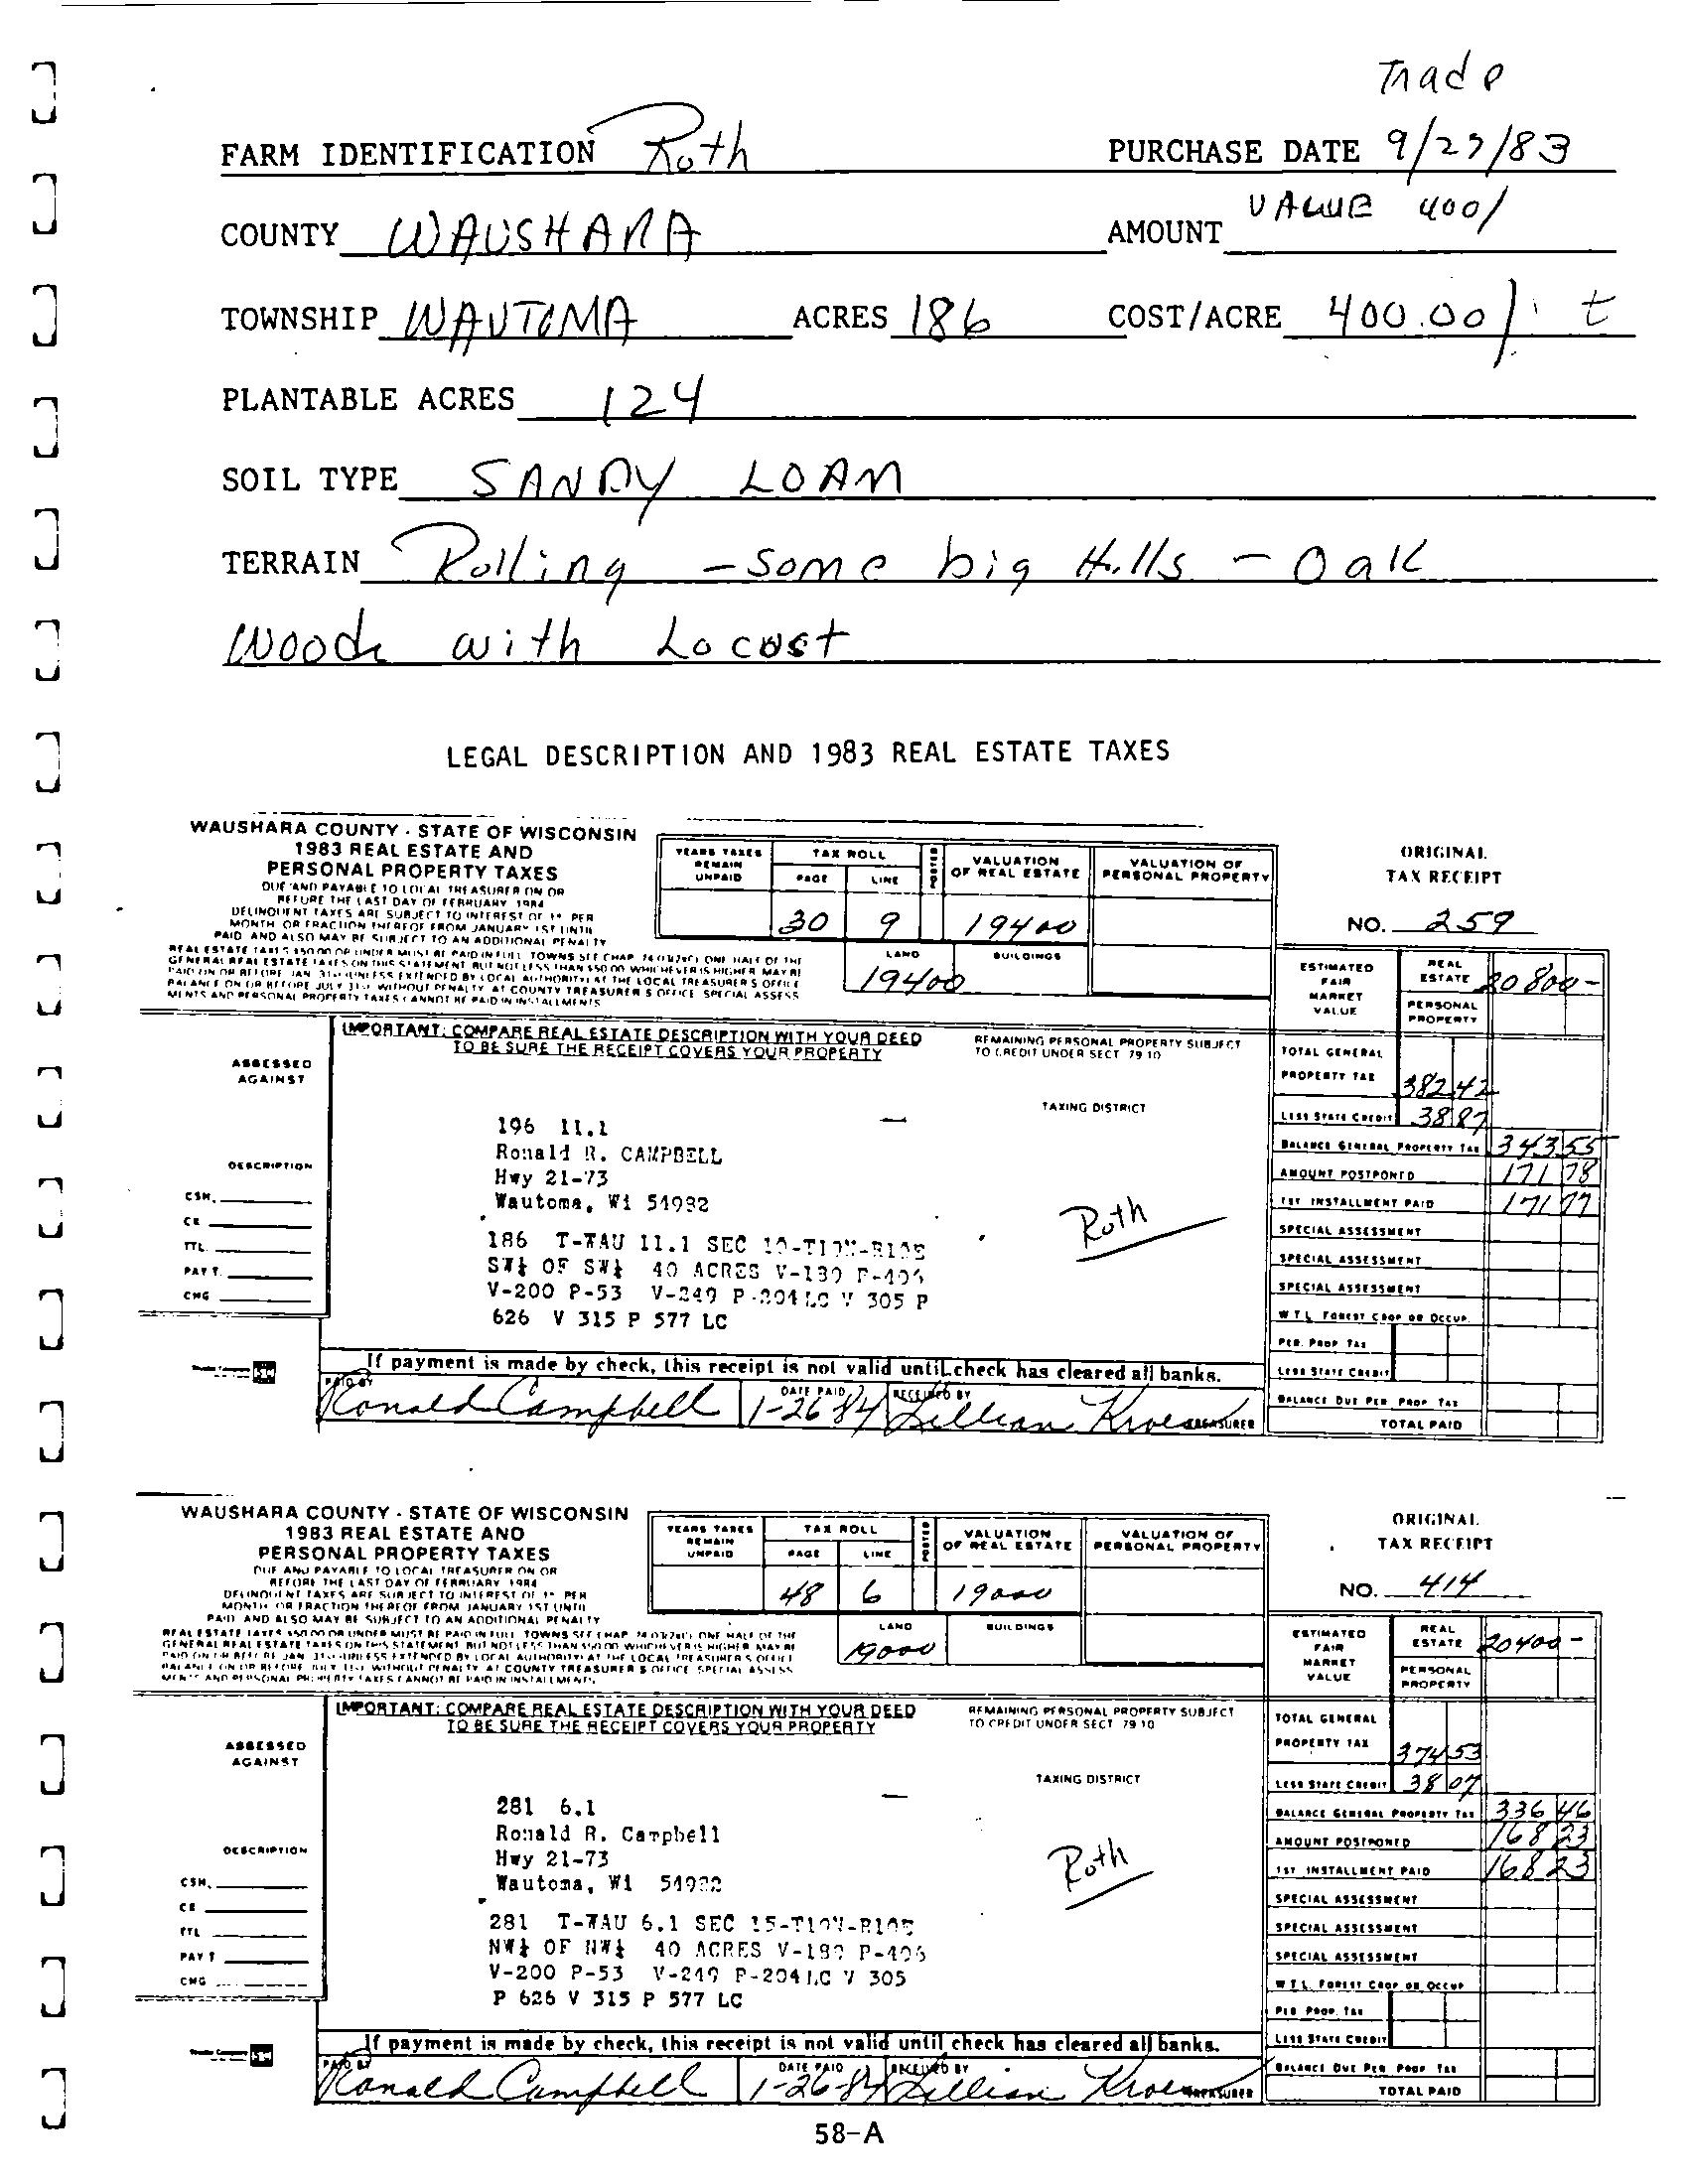 Trade
FARM IDENTIFICATION Roth PURCHASE DATE 9/27/83
COUNTY WAUSHARA AMOUNT VALUE 400/
TOWNSHIP WAUTOMA ACRES 186 COST/ACRE 400.00/ t
PLANTABLE ACRES 124
SOIL TYPE SANDY LOAM
TERRAIN Rolling - some big Hills - Oak
Woods with Locust
LEGAL DESCRIPTION AND 1983 REAL ESTATE TAXES
WAUSHARA COUNTY - STATE OF WISCONSIN
1983 REAL ESTATE AND
PERSONAL PROPERTY TAXES
DUE AND PAYABLE TO LOCAL TREASURER ON OR
BEFORE THE LAST DAY OF FEBRUARY 1984
DELINQUENT TAXES ARE SUBJECT TO INTEREST OF 1% PER
MONTH OR FRACTION THEREOF FROM JANUARY 1ST UNTIL
PAID AND ALSO MAY BE SUBJECT TO AN ADDITIONAL PENALTY
YEARS TAXES REMAIN UNPAID
TAX ROLL
PAGE LINE
POSTED
VALUATION OF REAL ESTATE
VALUATION OF PERSONAL PROPERTY
30 9 19400
LAND BUILDINGS
19400
ORIGINAL
TAX RECEIPT
NO. 259
ESTIMATED FAIR MARKET VALUE
REAL ESTATE 20800-
PERSONAL PROPERTY
IMPORTANT: COMPARE REAL ESTATE DESCRIPTION WITH YOUR DEED
TO BE SURE THE RECEIPT COVERS YOUR PROPERTY
REMAINING PERSONAL PROPERTY SUBJECT
TO CREDIT UNDER SECT 79.10
TAXING DISTRICT
ASSESSED
AGAINST
196 11.1
Ronald R. CAMPBELL
Hwy 21-73
Wautoma, Wi 54982
Roth
DESCRIPTION
CSH.
CK
TTL.
PAYT.
CHG
186 T-WAU 11.1 SEC 10-T19N-R10E
SW¼ OF SW¼ 40 ACRES V-189 P-406
V-200 P-53 V-249 P-204 LC V 305 P
626 V 315 P 577 LC
TOTAL GENERAL
PROPERTY TAX 382 42
LESS STATE CREDIT 38 87
BALANCE GENERAL PROPERTY TAX 343 55
AMOUNT POSTPONED 171 78
1ST INSTALLMENT PAID 171 77
SPECIAL ASSESSMENT
SPECIAL ASSESSMENT
SPECIAL ASSESSMENT
W.T.L. FOREST CROP OR OCCUP.
PER. PROP TAX
LESS STATE CREDIT
BALANCE DUE PER PROP TAX
TOTAL PAID
If payment is made by check, this receipt is not valid until check has cleared all banks.
PAID BY Ronald Campbell DATE PAID 1-26-84 RECEIVED BY Lillian TREASURER
WAUSHARA COUNTY - STATE OF WISCONSIN
1983 REAL ESTATE AND
PERSONAL PROPERTY TAXES
DUE AND PAYABLE TO LOCAL TREASURER ON OR
BEFORE THE LAST DAY OF FEBRUARY 1984
DELINQUENT TAXES ARE SUBJECT TO INTEREST OF 1% PER
MONTH OR FRACTION THEREOF FROM JANUARY 1ST UNTIL
PAID AND ALSO MAY BE SUBJECT TO AN ADDITIONAL PENALTY
YEARS TAXES REMAIN UNPAID
TAX ROLL
PAGE LINE
POSTED
VALUATION OF REAL ESTATE
VALUATION OF PERSONAL PROPERTY
48 6 19000
LAND BUILDINGS
19000
ORIGINAL
TAX RECEIPT
NO. 414
ESTIMATED FAIR MARKET VALUE
REAL ESTATE 20400-
PERSONAL PROPERTY
IMPORTANT: COMPARE REAL ESTATE DESCRIPTION WITH YOUR DEED
TO BE SURE THE RECEIPT COVERS YOUR PROPERTY
REMAINING PERSONAL PROPERTY SUBJECT
TO CREDIT UNDER SECT 79.10
TAXING DISTRICT
ASSESSED
AGAINST
281 6.1
Ronald R. Campbell
Hwy 21-73
Wautoma, Wi 54982
Roth
DESCRIPTION
CSH.
CK
TTL
PAYT
CHG
281 T-WAU 6.1 SEC 15-T19N-R10E
NW¼ OF NW¼ 40 ACRES V-189 P-406
V-200 P-53 V-249 P-204 LC V 305
P 626 V 315 P 577 LC
TOTAL GENERAL
PROPERTY TAX 374 53
LESS STATE CREDIT 38 07
BALANCE GENERAL PROPERTY TAX 336 46
AMOUNT POSTPONED 168 23
1ST INSTALLMENT PAID 168 23
SPECIAL ASSESSMENT
SPECIAL ASSESSMENT
SPECIAL ASSESSMENT
W.T.L. FOREST CROP OR OCCUP
PER. PROP. TAX
LESS STATE CREDIT
BALANCE DUE PER PROP TAX
TOTAL PAID
If payment is made by check, this receipt is not valid until check has cleared all banks.
PAID BY Ronald Campbell DATE PAID 1-26-84 RECEIVED BY Lillian TREASURER
58-A